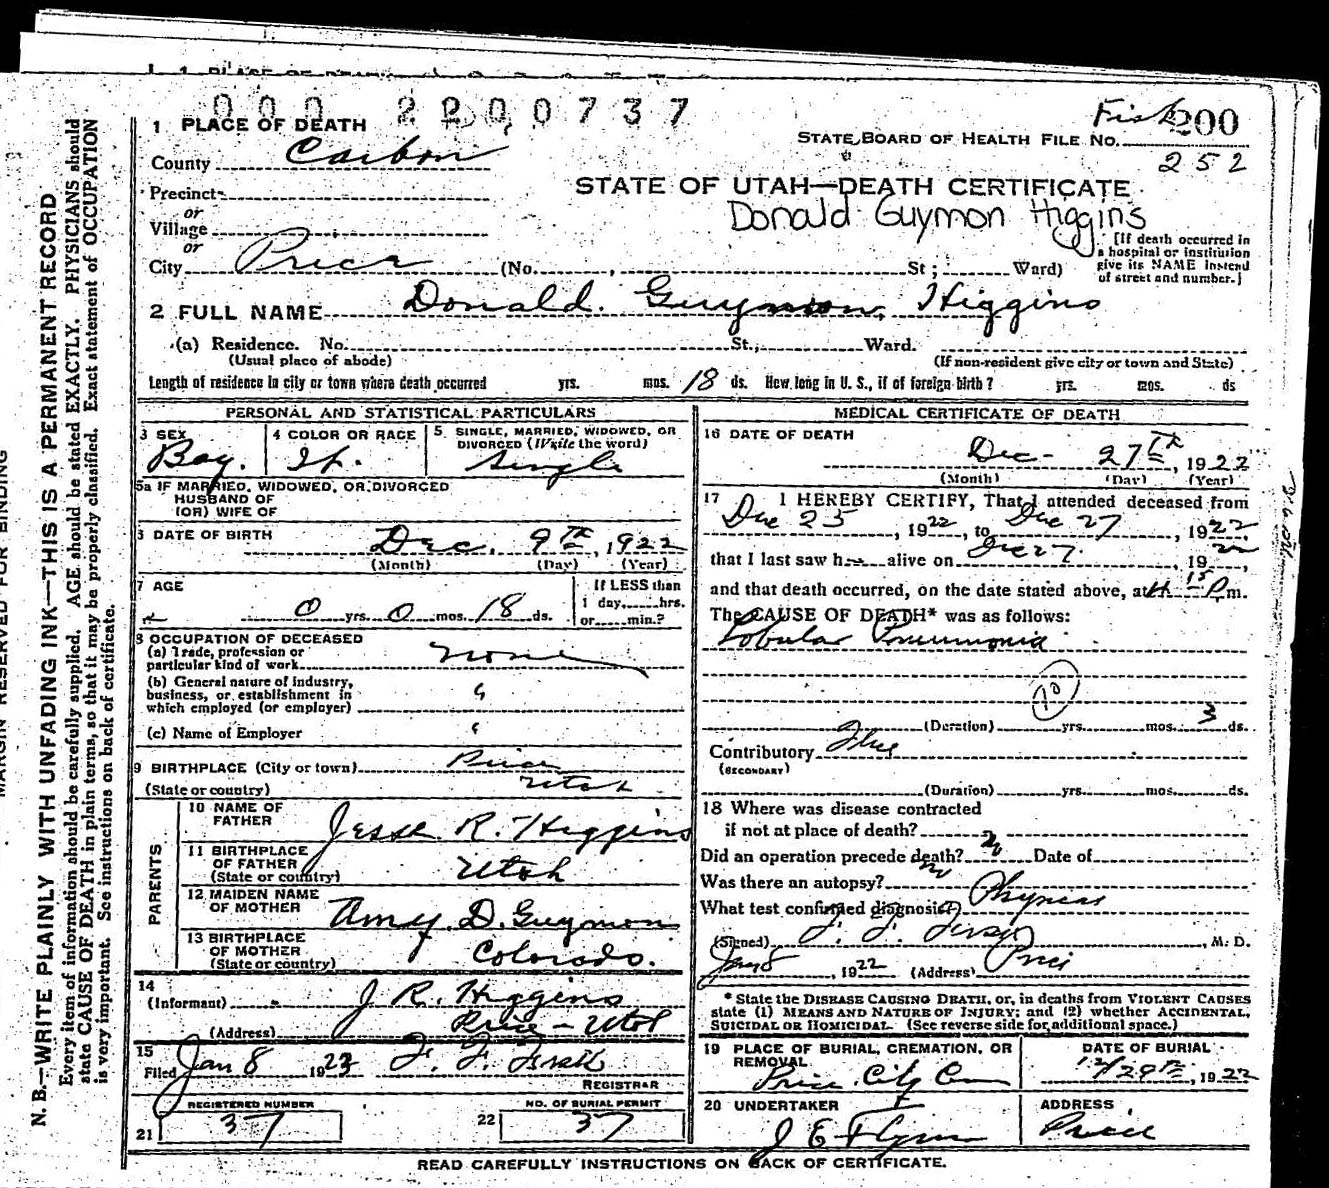 000 2200737
Fisk 200
1 PLACE OF DEATH
STATE BOARD OF HEALTH FILE NO.
252
County Carbon
Precinct
STATE OF UTAH—DEATH CERTIFICATE
or
Village
Donald Guymon Higgins
or
City Price (No. , St; Ward)
[If death occurred in
a hospital or institution
give its NAME instead
of street and number.]
2 FULL NAME Donald. Guymon Higgins
(a) Residence. No. St., Ward.
(Usual place of abode) (If non-resident give city or town and State)
Length of residence in city or town where death occurred yrs. mos. 18 ds. How long in U. S., if of foreign birth? yrs. mos. ds
PERSONAL AND STATISTICAL PARTICULARS
3 SEX 4 COLOR OR RACE 5 SINGLE, MARRIED, WIDOWED, OR
DIVORCED (Write the word)
Boy. single
5a IF MARRIED, WIDOWED, OR DIVORCED
HUSBAND OF
(OR) WIFE OF
6 DATE OF BIRTH Dec. 9th, 1922
(Month) (Day) (Year)
7 AGE If LESS than
0 yrs. 0 mos. 18 ds. 1 day, hrs.
or min.?
8 OCCUPATION OF DECEASED
(a) Trade, profession or
particular kind of work none
(b) General nature of industry,
business, or establishment in
which employed (or employer) "
(c) Name of Employer "
9 BIRTHPLACE (City or town) Price
(State or country) Utah
PARENTS
10 NAME OF
FATHER Jesse R. Higgins
11 BIRTHPLACE
OF FATHER
(State or country) Utah
12 MAIDEN NAME
OF MOTHER Amy D. Guymon
13 BIRTHPLACE
OF MOTHER
(State or country) Colorado.
14
(Informant) J R. Higgins
(Address) Price - Utah
15
Filed Jan 8 1923 F. F. Fisk
REGISTRAR
REGISTERED NUMBER NO. OF BURIAL PERMIT
21 37 22 37
MEDICAL CERTIFICATE OF DEATH
16 DATE OF DEATH
Dec- 27th, 1922
(Month) (Day) (Year)
17 I HEREBY CERTIFY, That I attended deceased from
Dec 25, 1922, to Dec 27, 1922,
that I last saw h alive on Dec 27, 1922,
and that death occurred, on the date stated above, at 15 P.m.
The CAUSE OF DEATH* was as follows:
Lobular Pneumonia
(Duration) yrs. mos. 3 ds.
Contributory Flue
(SECONDARY)
(Duration) yrs. mos. ds.
18 Where was disease contracted
if not at place of death?
Did an operation precede death? no Date of
Was there an autopsy? no
What test confirmed diagnosis?
(Signed) F. F. Fisk, M. D.
Jan 8, 1922 (Address) Price
* State the DISEASE CAUSING DEATH, or, in deaths from VIOLENT CAUSES
state (1) MEANS AND NATURE OF INJURY; and (2) whether ACCIDENTAL,
SUICIDAL OR HOMICIDAL. (See reverse side for additional space.)
19 PLACE OF BURIAL, CREMATION, OR
REMOVAL DATE OF BURIAL
Price City Cem 12/29th, 1922
20 UNDERTAKER ADDRESS
J E Flynn Price
READ CAREFULLY INSTRUCTIONS ON BACK OF CERTIFICATE.
MARGIN RESERVED FOR BINDING
N. B.—WRITE PLAINLY WITH UNFADING INK—THIS IS A PERMANENT RECORD
Every item of information should be carefully supplied. AGE should be stated EXACTLY. PHYSICIANS should
state CAUSE OF DEATH in plain terms, so that it may be properly classified. Exact statement of OCCUPATION
is very important. See instructions on back of certificate.